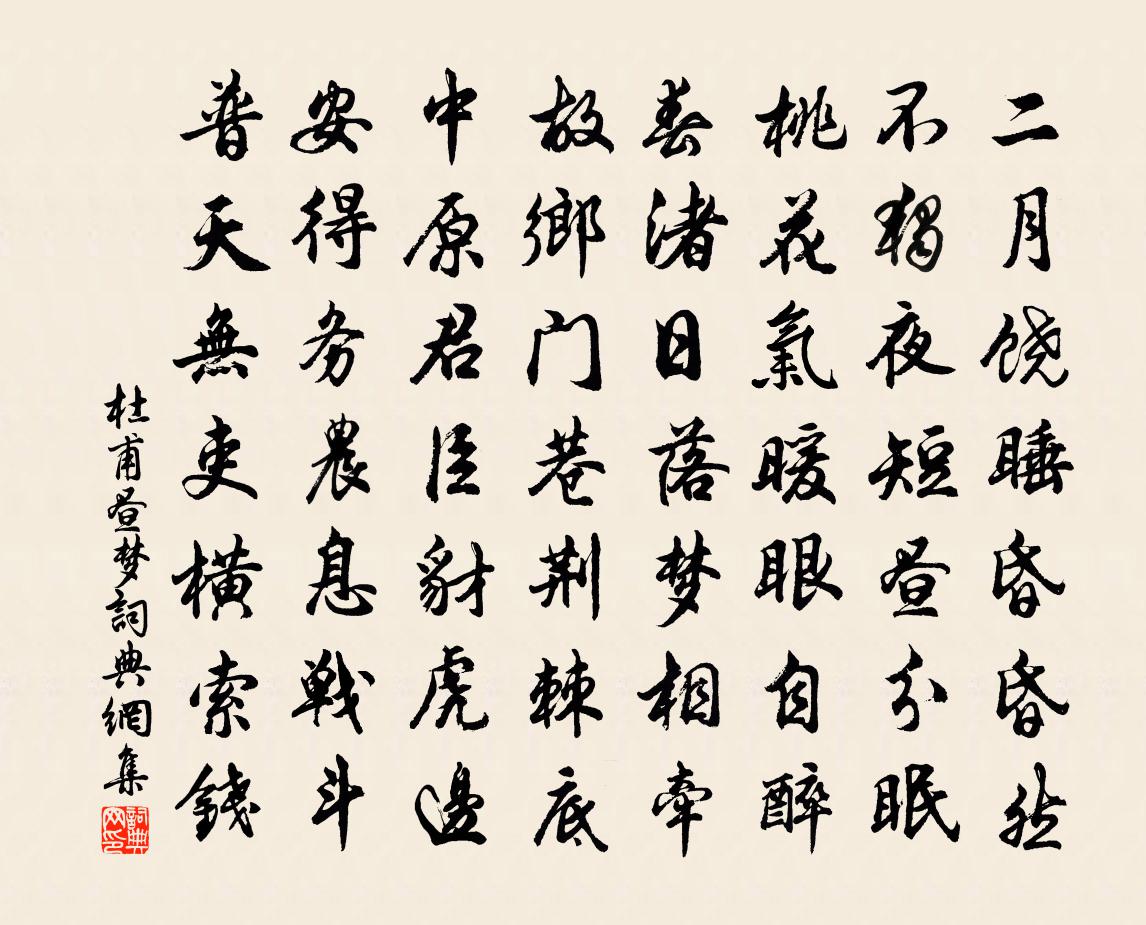 二月饶睡昏昏然
不独夜短昼分眠
桃花氣暖眼自醉
春渚日落梦相牵
故鄉门巷荆棘底
中原君臣豺虎邊
安得务農息戦斗
普天無吏横索錢
杜甫昼梦詞典網集
詞典网印